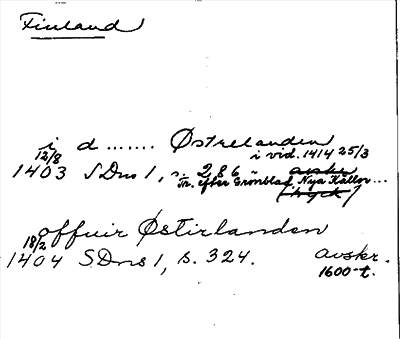 Finland
i d ....... Østrelanden
i vid. 1414 25/3
12/8
1403 SDns 1, s. 286 " avskr
Tr. efter Grönblad, Nya Källor...
(tryck)
offuir Østirlanden
18/2
1404 SDns 1, s. 324. avskr.
1600-t.